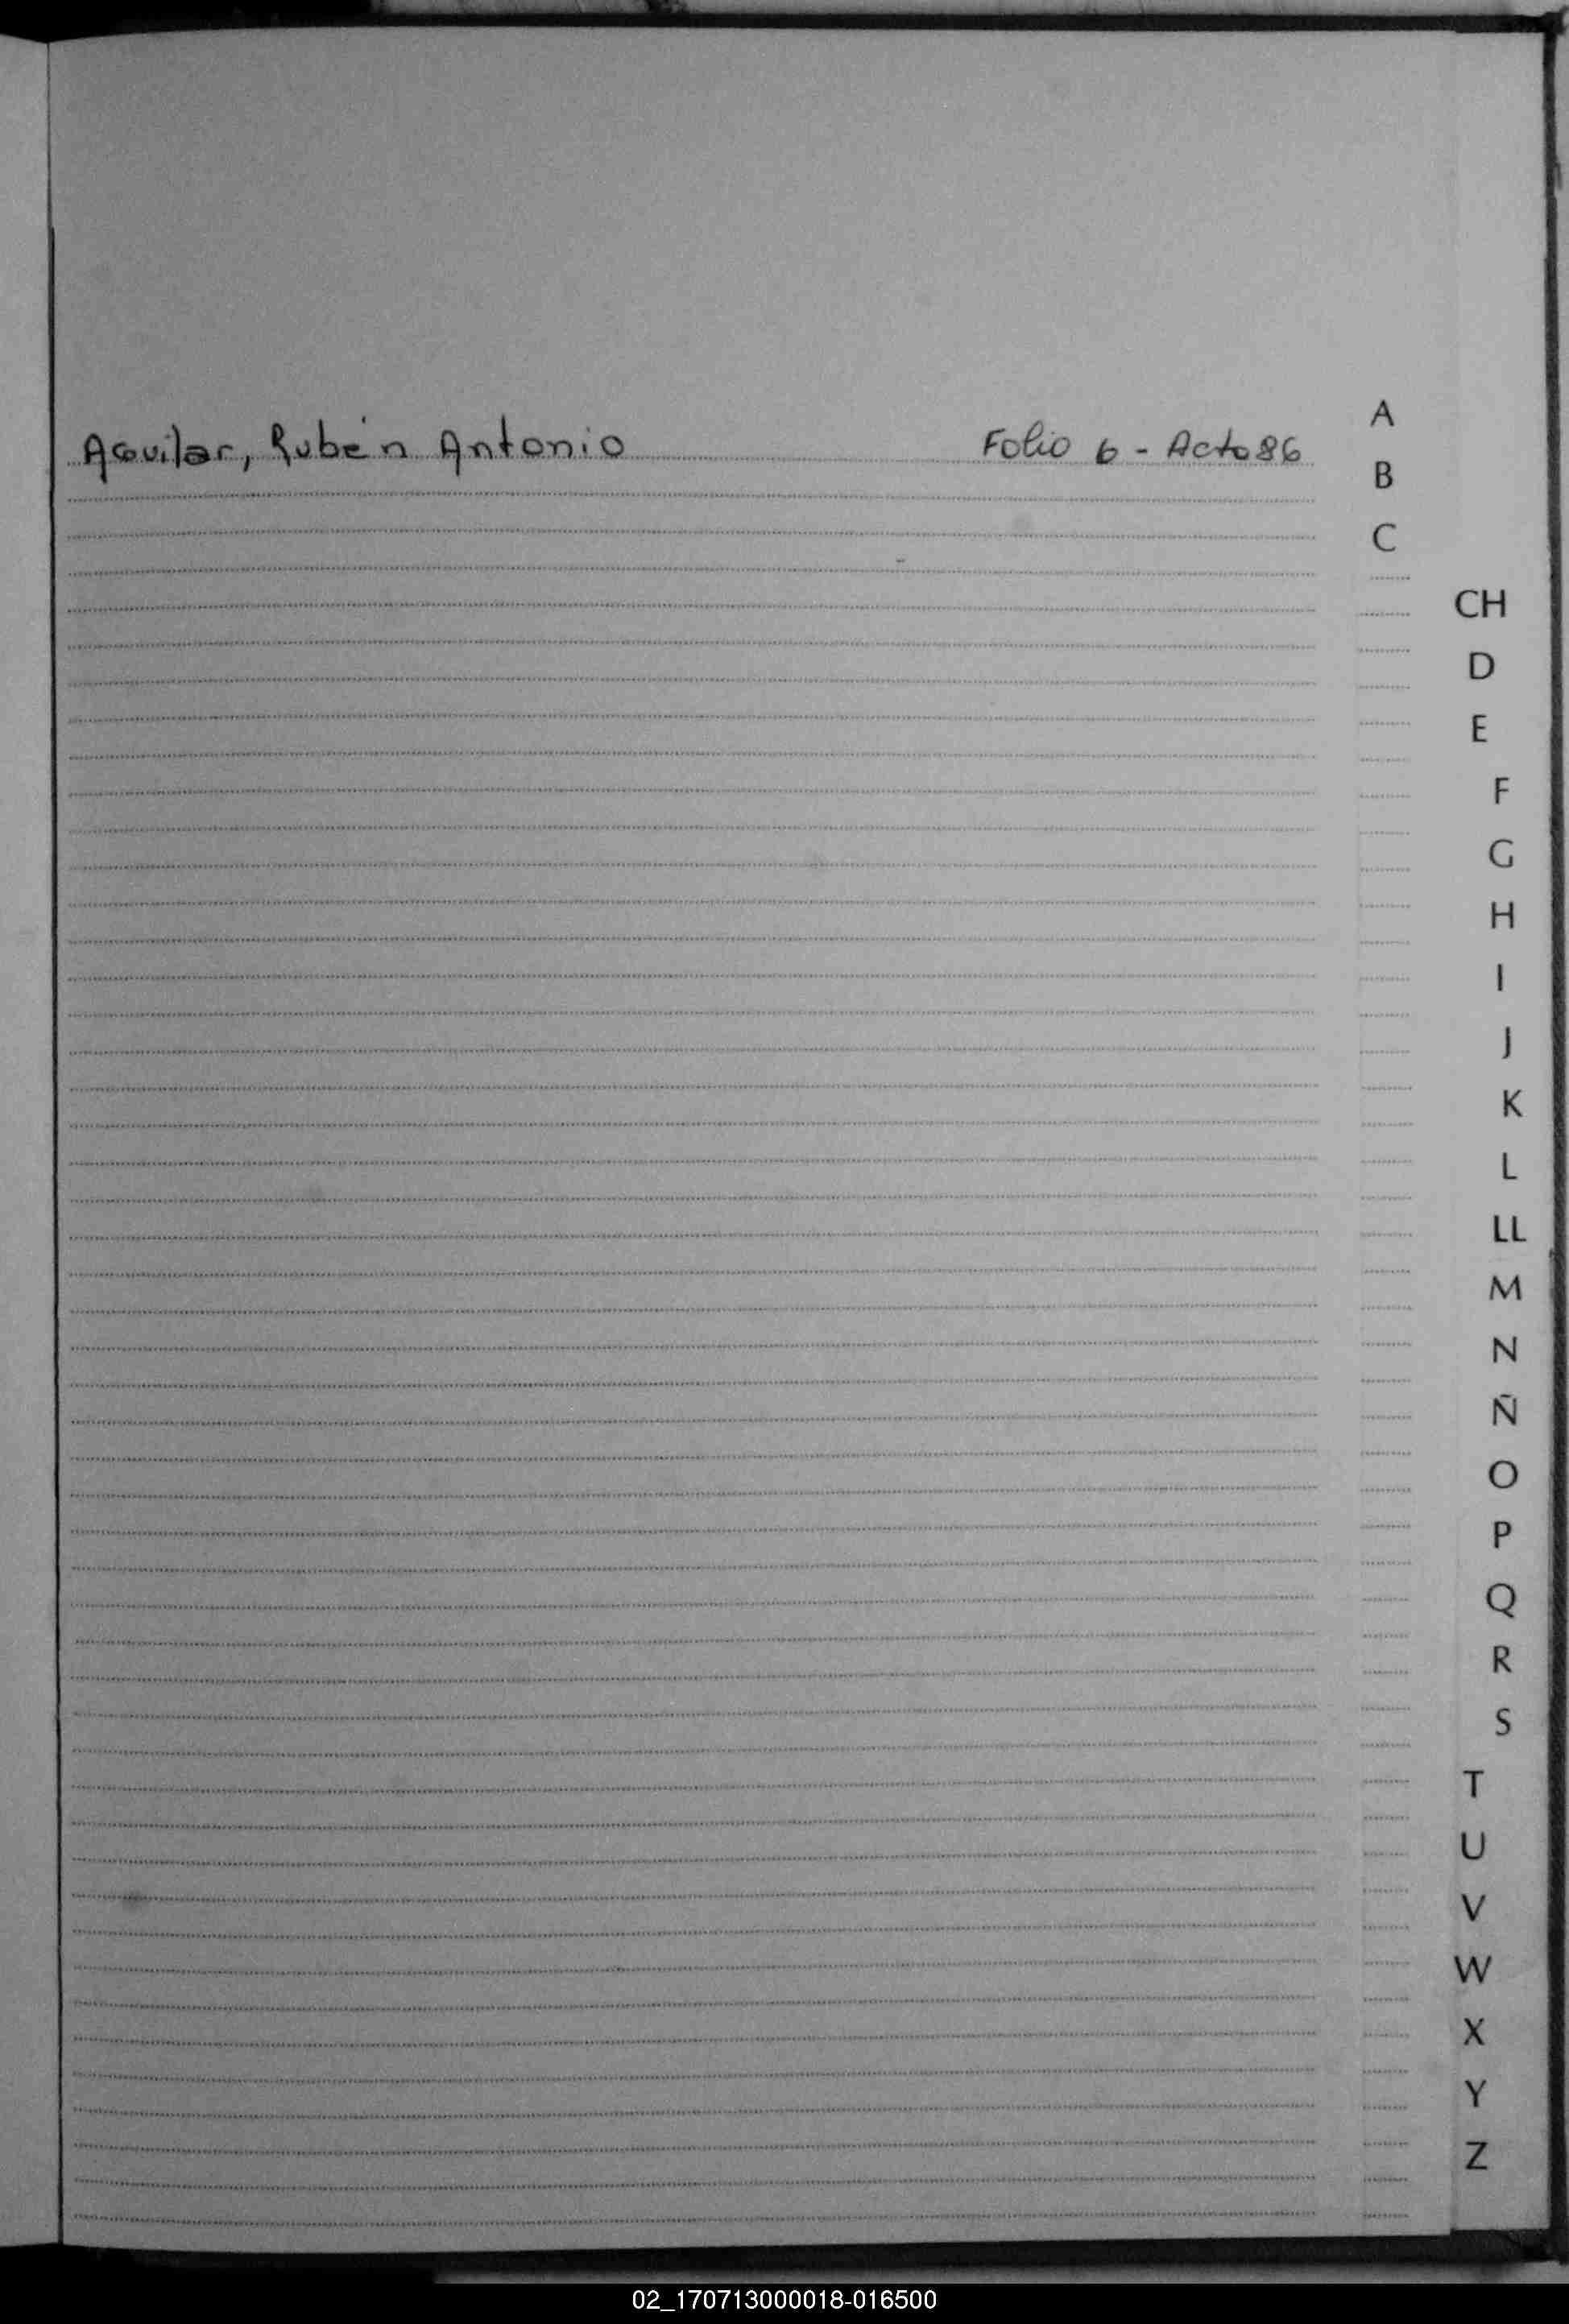 Aguilar, Rubén Antonio Folio 6 - Acto 86
A
B
C
CH
D
E
F
G
H
I
J
K
L
LL
M
N
Ñ
O
P
Q
R
S
T
U
V
W
X
Y
Z
02_170713000018-016500